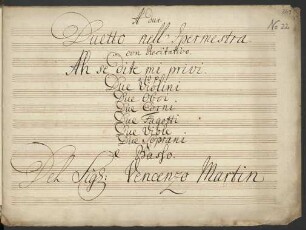 A due
No 22
Duetto nell'Ipermestra
con Recitativo
Ah se di te mi privi
Due Violini
Due Oboi
Due Corni
Due Fagotti
Due Viole
Due Soprani
e Basso.
Del Sigr: Vencenzo Martin